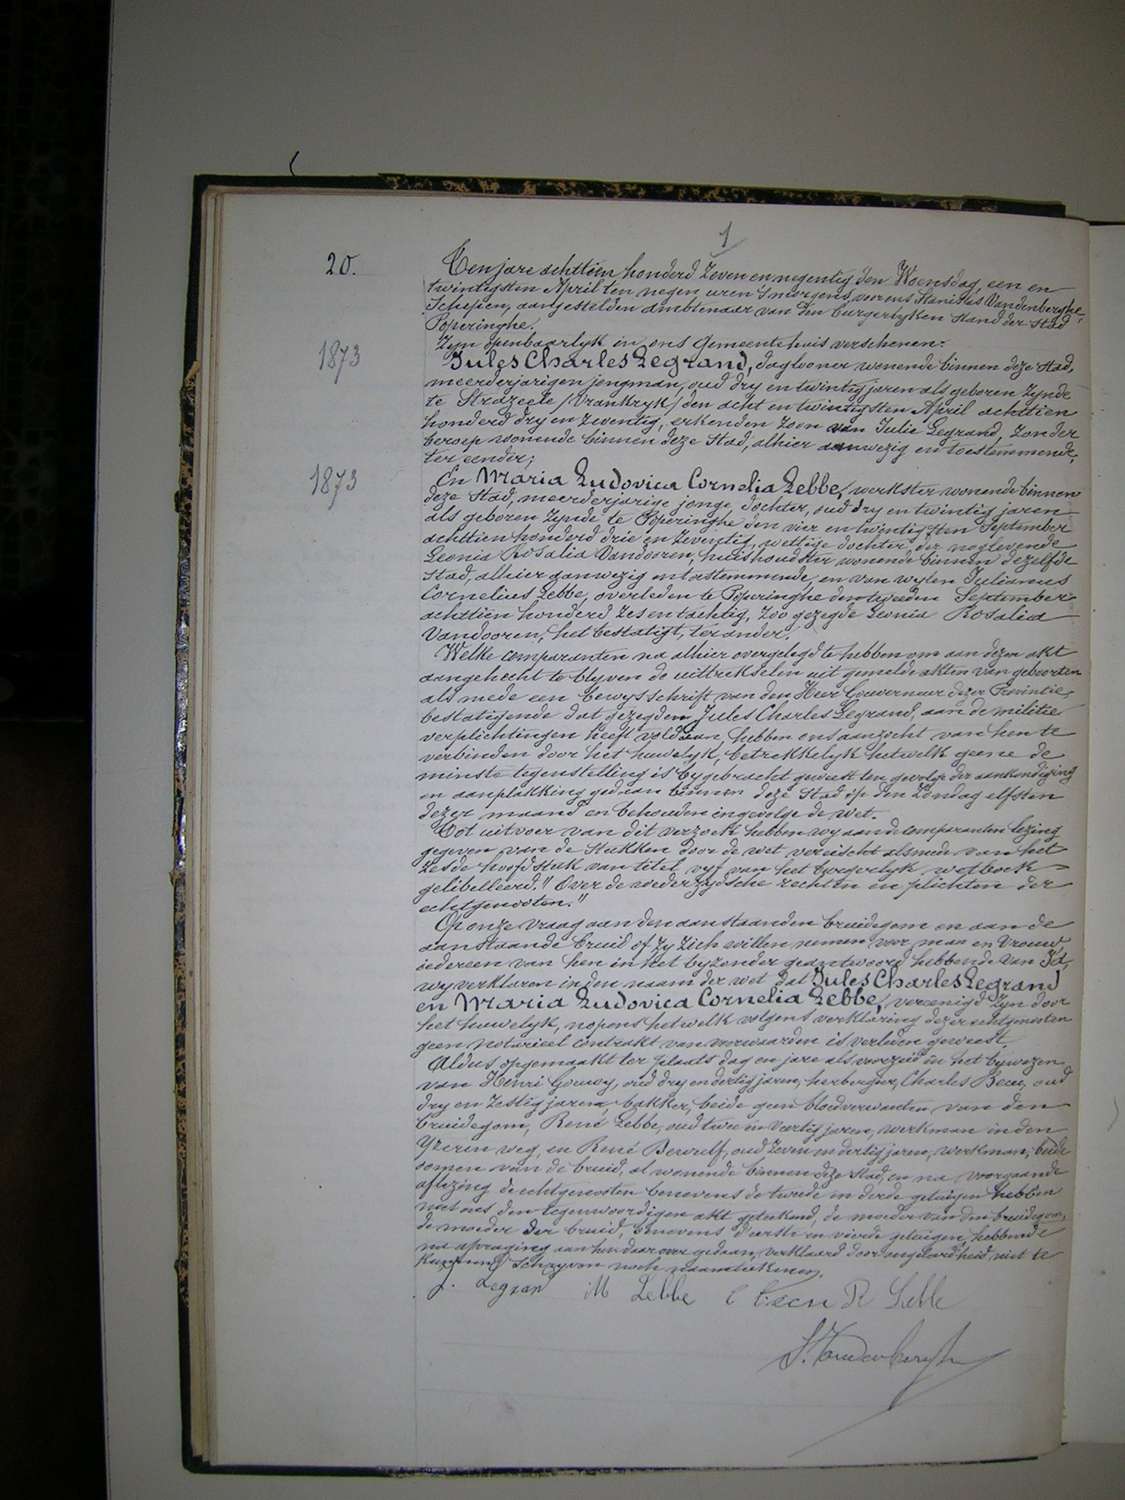 1
20.
Ten jare achttien honderd zeven en negentig den Woensdag, een en
twintigsten April ten negen uren 's morgens, voor ons Stanislas Vandenberghe,
Schepen, aangestelden ambtenaar van den burgerlyken Stand der Stad
Poperinghe.
Zyn openbaarlyk in ons Gemeentehuis verschenen:
1873
Jules Charles Legrand, daglooner wonende binnen deze Stad,
meerderjarigen jongman, oud dry en twintig jaren als geboren zynde
te Strazeele /Vrankryk/ den acht en twintigsten April achttien
honderd dry en zeventig, erkenden zoon van Julie Legrand, zonder
beroep wonende binnen deze Stad, alhier aanwezig en toestemmende,
ter eender;
1873
En Maria Ludovica Cornelia Lebbe, werkster wonende binnen
deze Stad, meerderjarige jonge dochter, oud dry en twintig jaren
als geboren zynde te Poperinghe den vier en twintigsten September
achttien honderd drie en zeventig, wettige dochter der noglevende
Leonia Rosalia Vandooren, huishoudster wonende binnen dezelfde
Stad, alhier aanwezig en toestemmende, en van wylen Julianus
Cornelius Lebbe, overleden te Poperinghe den tweeden September
achttien honderd zes en tachtig, zoo gezegde Leonia Rosalia
Vandooren, het bestatigt, ter ander.
Welke comparanten na alhier overgelegd te hebben om aan dezen akt
aangehecht te blyven de uittrekselen uit gemelde akten van geboorten
als mede een bewysschrift van den Heer Gouverneur dezer Provintie,
bestatigende dat gezegden Jules Charles Legrand, aan de militie
verplichtingen heeft voldaan, hebben ons aanzocht van hen te
verbinden door het huwelyk, betrekkelyk hetwelk geene de
minste tegenstelling is bygebracht geweest ten gevolge der aankondiging
en aanplakking gedaan binnen deze Stad op den Zondag elfsten
dezer maand en behouden ingevolge de wet.
Tot uitvoer van dit verzoek hebben wy aan de comparanten lezing
gegeven van de Stukken door de wet vereischt alsmede van het
zesde hoofdstuk van titel vyf van het burgerlyk wetboek
gelibelleerd "Over de wederzydsche rechten en plichten der
echtgenooten."
Op onze vraag aan den aanstaanden bruidegom en aan de
aanstaande bruid of zy zich willen nemen voor man en vrouw
iedereen van hen in het byzonder geantwoord hebbende van Ja,
wy verklaren in den naam der wet dat Jules Charles Legrand
en Maria Ludovica Cornelia Lebbe, vereenigd zyn door
het huwelyk, nopens hetwelk volgens verklaring dezer echtgenooten
geen notarieel contrakt van voorwaarden is verleden geweest.
Aldus opgemaakt ter plaats dag en jare als voorzeid in het bywezen
van Henri Gouwy, oud dry en dertig jaren, herbergier, Charles Becu, oud
dry en zestig jaren, bakker, beide geen bloedverwanten van den
bruidegom, René Lebbe, oud twee en veertig jaren, werkman in den
Yzeren weg, en René oud zeven en dertig jaren, werkman, beide
oomen van de bruid, al wonende binnen deze Stad, en na voorgaande
aflezing de echtgenooten benevens de tweede en derde getuigen hebben
met ons den tegenwoordigen akt geteekend, de moeder van den bruidegom,
de moeder der bruid, benevens d'eerste en vierde getuigen, hebbende
na afvraging aan hen daar over gedaan, verklaard door ongeleerdheid niet te
kunnen schryven noch naamteekenen.
J. Legran M Lebbe C Becu R Lebbe
S. Vandenberghe